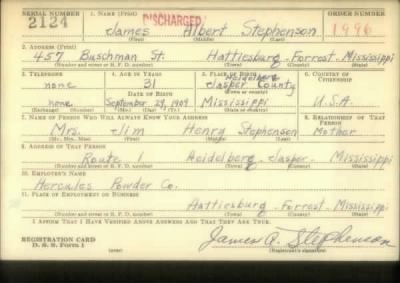 SERIAL NUMBER 1. NAME (Print) ORDER NUMBER
2124 DISCHARGED 1996
James Albert Stephenson
(First) (Middle) (Last)
2. ADDRESS (Print)
457 Buschman St. Hattiesburg Forrest Mississippi
(Number and street or R. F. D. number) (Town) (County) (State)
3. TELEPHONE 4. AGE IN YEARS 5. PLACE OF BIRTH 6. COUNTRY OF CITIZENSHIP
none 31 Heidelberg
Jasper County
DATE OF BIRTH (Town or county)
none September 29, 1909 Mississippi U.S.A.
(Exchange) (Number) (Mo.) (Day) (Yr.) (State or country)
7. NAME OF PERSON WHO WILL ALWAYS KNOW YOUR ADDRESS 8. RELATIONSHIP OF THAT PERSON
Mrs. Jim Henry Stephenson Mother
(Mr., Mrs., Miss) (First) (Middle) (Last)
9. ADDRESS OF THAT PERSON
Route 1 Heidelberg Jasper Mississippi
(Number and street or R. F. D. number) (Town) (County) (State)
10. EMPLOYER'S NAME
Hercules Powder Co.
11. PLACE OF EMPLOYMENT OR BUSINESS
Hattiesburg Forrest Mississippi
(Number and street or R. F. D. number) (Town) (County) (State)
I AFFIRM THAT I HAVE VERIFIED ABOVE ANSWERS AND THAT THEY ARE TRUE.
REGISTRATION CARD
D. S. S. Form 1 James A. Stephenson